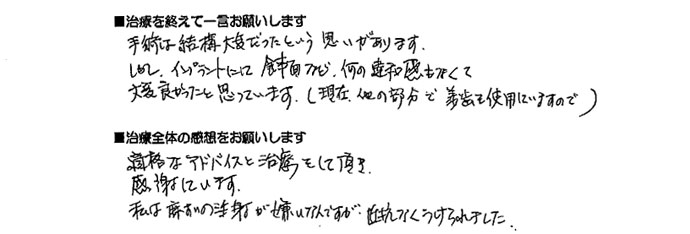 ■治療を終えて一言お願いします
手術は結構大変だったという思いがあります。
しかし、インプラントにして食事面など、何の違和感もなくて
大変良かったと思っています。(現在、他の部分で義歯を使用していますので)
■治療全体の感想をお願いします
適格なアドバイスと治療をして頂き、
感謝しています。
私は麻酔の注射が嫌いなんですが、抵抗なくうけられました。